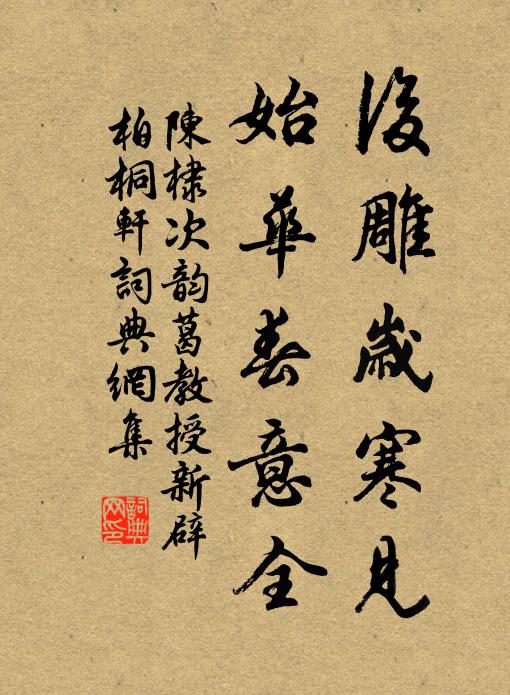 後雕歲寒見
始華春意全
陳棣次韵葛教授新辟
柏桐軒詞典網集
詞典网印